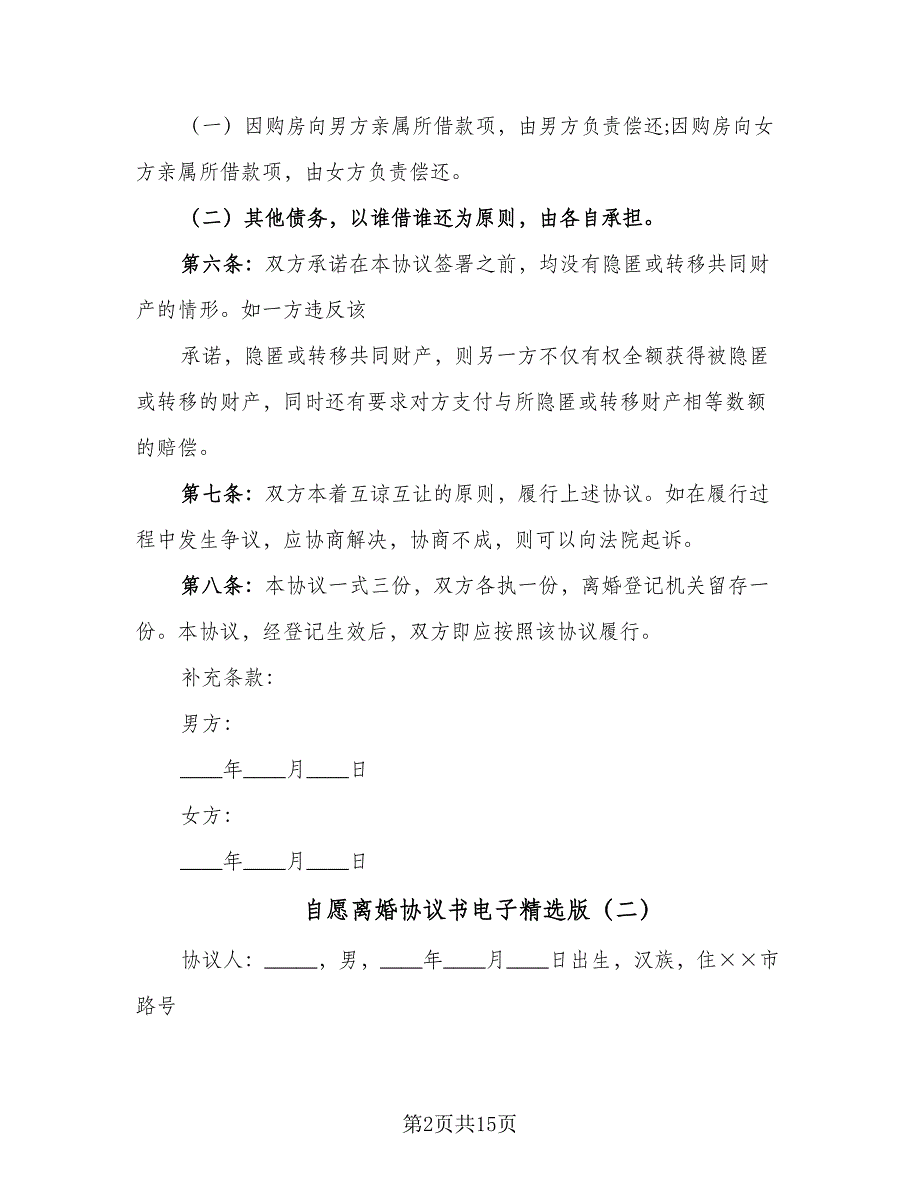 （一）因购房向男方亲属所借款项，由男方负责偿还;因购房向女
方亲属所借款项，由女方负责偿还。
（二）其他债务，以谁借谁还为原则，由各自承担。
第六条：双方承诺在本协议签署之前，均没有隐匿或转移共同财
产的情形。如一方违反该
承诺，隐匿或转移共同财产，则另一方不仅有权全额获得被隐匿
或转移的财产，同时还有要求对方支付与所隐匿或转移财产相等数额
的赔偿。
第七条：双方本着互谅互让的原则，履行上述协议。如在履行过
程中发生争议，应协商解决，协商不成，则可以向法院起诉。
第八条：本协议一式三份，双方各执一份，离婚登记机关留存一
份。本协议，经登记生效后，双方即应按照该协议履行。
补充条款：
男方：
____年____月____日
女方：
____年____月____日
自愿离婚协议书电子精选版（二）
协议人：_____，男，____年____月____日出生，汉族，住××市
路号
第2页共15页